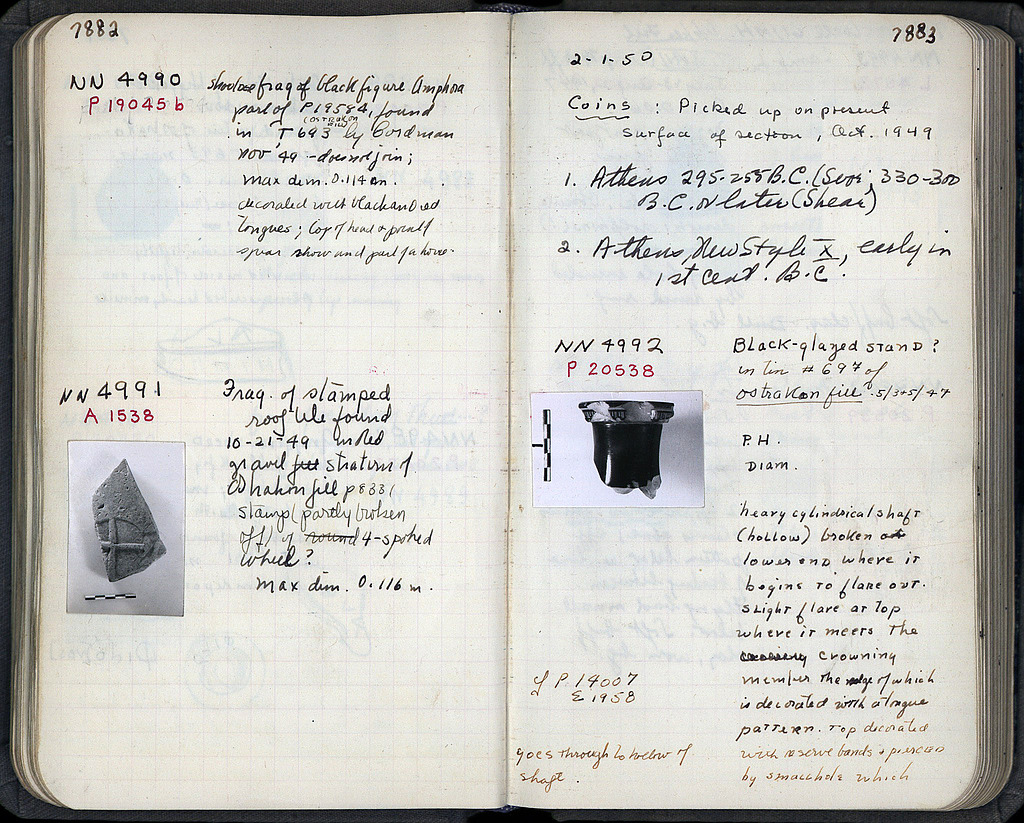 7882
NN 4990
P 19045 b
shoulder frag of black figure Amphora
part of P 19554, found
(OSTRAKON
FILL)
in T 693 by Cordman
nov '49 - does not join;
max dim. 0.114 m.
decorated with black and red
tongues; top of head & point of
spear show and part of a horse.
NN 4991
A 1538
Frag. of stamped
roof tile found
10-21-49 in red
gravel stratum of
Ostrakon fill p 8331
stamp (partly broken
off) of round 4-spoked
wheel?
max dim. 0.116 m.
7883
2-1-50
Coins : Picked up on present
surface of section, Oct. 1949
1. Athens 295-255 B.C. (Svor; 330-300
B.C. or later (Shear)
2. Athens, New Style X, early in
1st cent. B.C.
NN 4992
P 20538
Black-glazed stand?
in tin # 697 of
ostrakon fill 5/3+5/47
P.H.
Diam.
heavy cylindrical shaft
(hollow) broken at
lower end where it
begins to flare out.
slight flare at top
where it meets the
crowning
member the edge of which
is decorated with a tongue
pattern. Top decorated
with reserve bands & pierced
by small hole which
cf P. 14007
Σ 1958
goes through to hollow of
shaft.